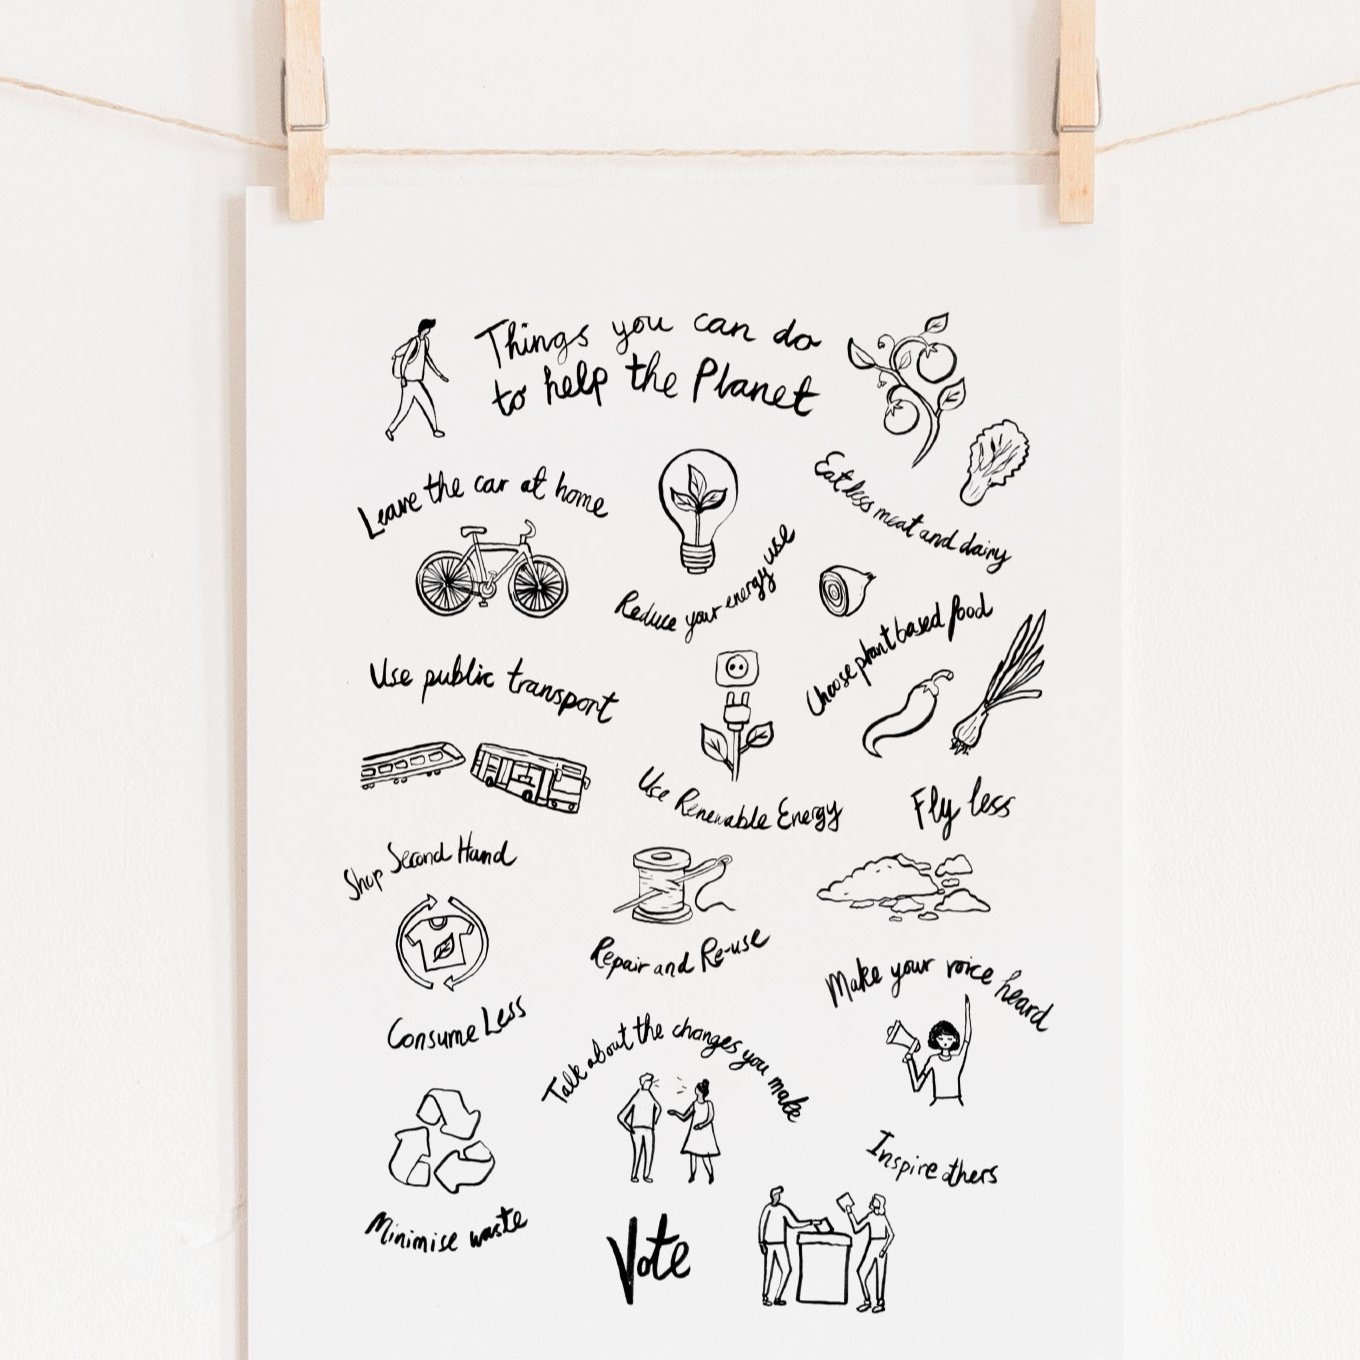 Things you can do
to help the Planet
Leave the car at home
Reduce your energy use
Eat less meat and dairy
Choose plant based food
Use public transport
Use Renewable Energy
Fly less
Shop Second Hand
Repair and Re-use
Make your voice heard
Consume Less
Talk about the changes you make
Inspire others
Minimise waste
Vote